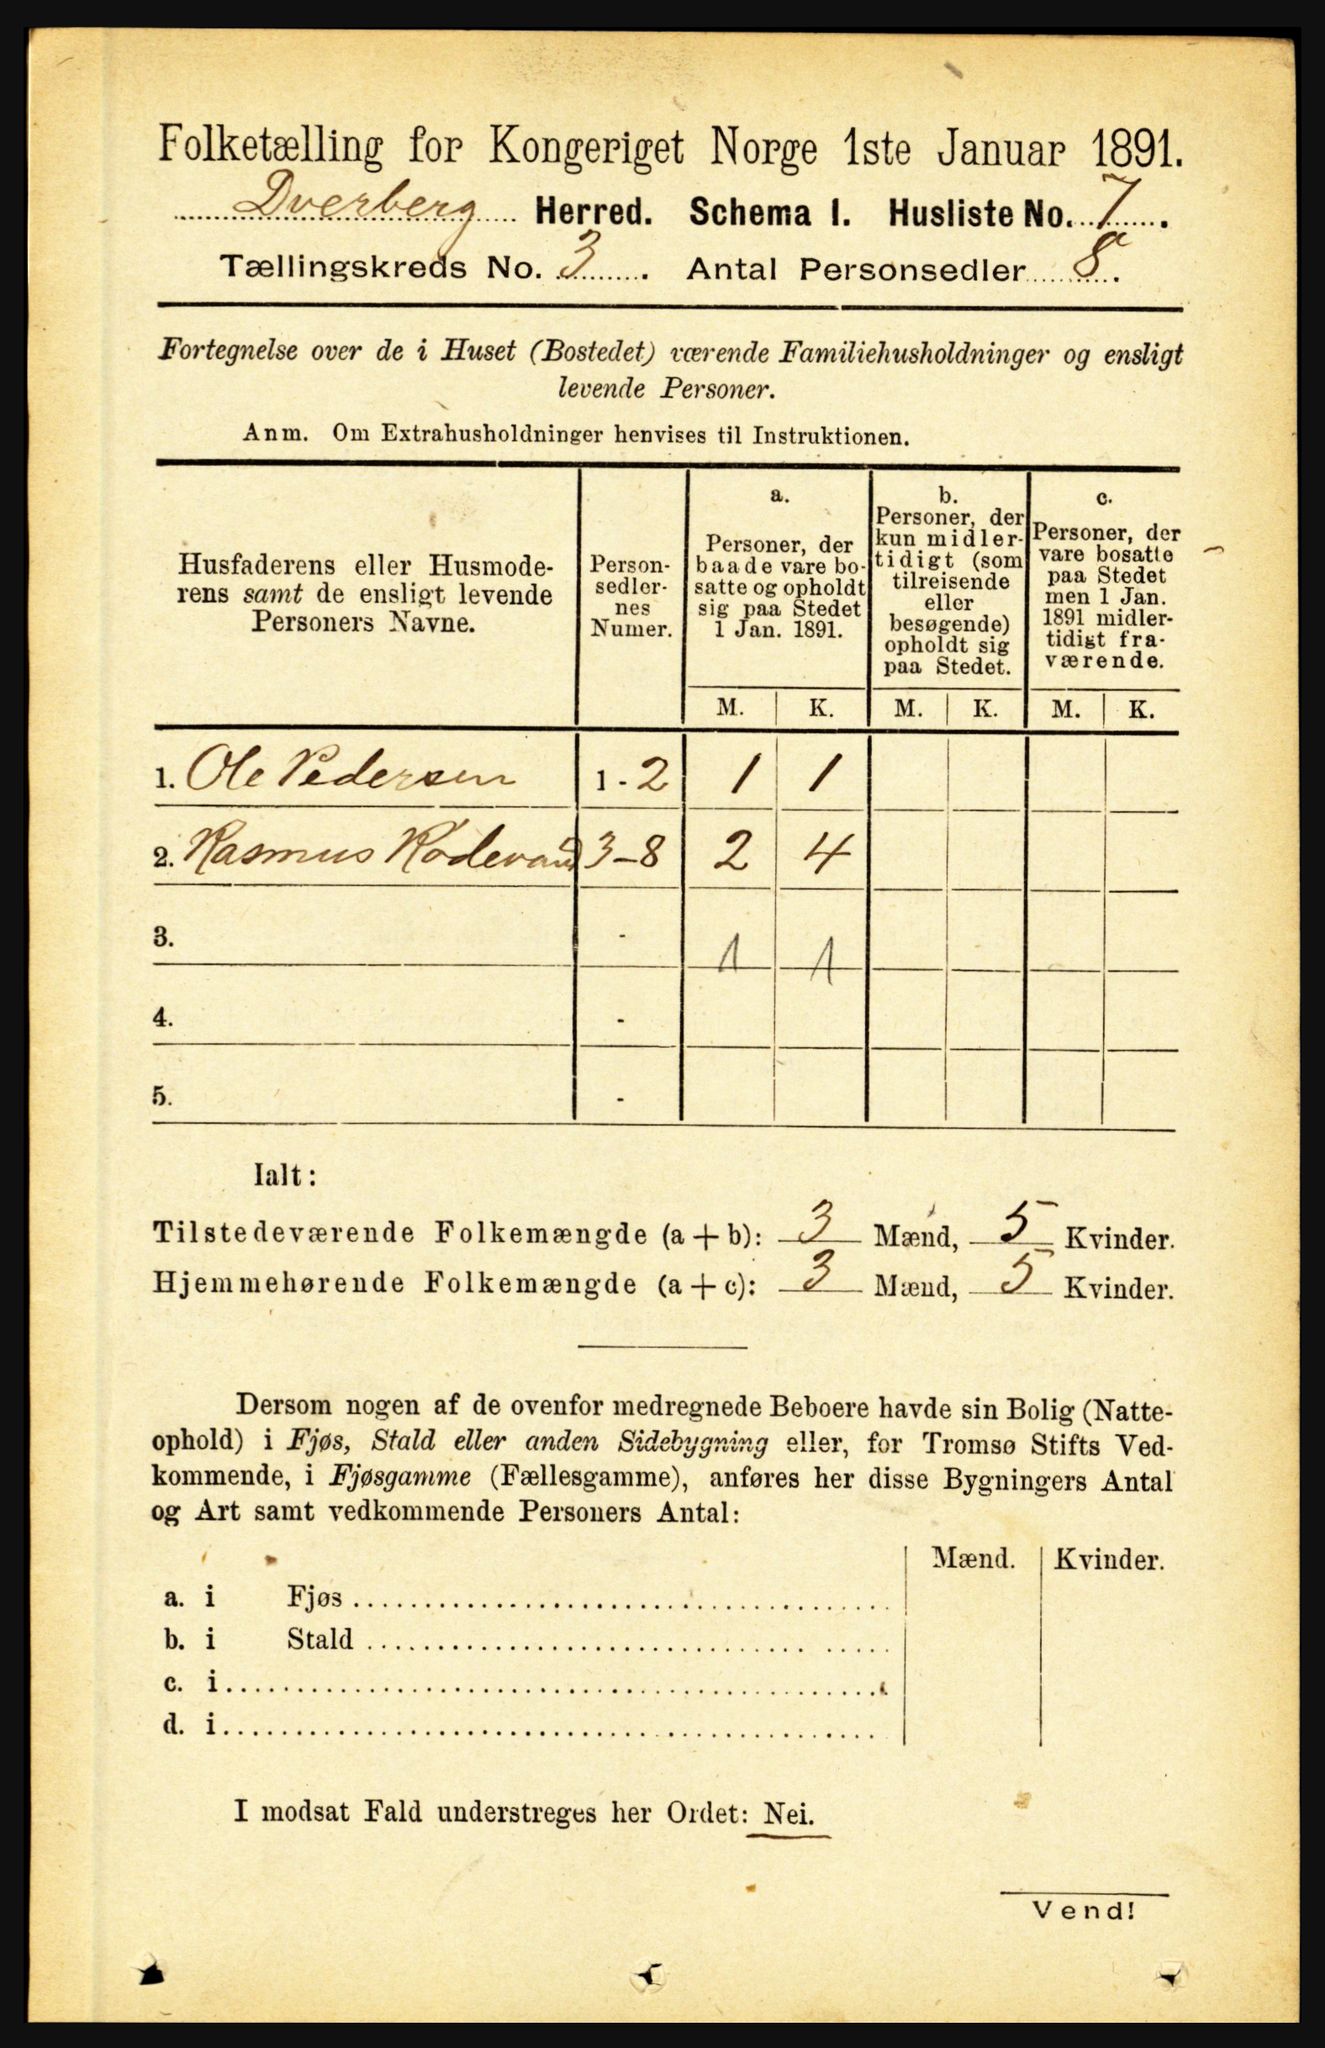 Folketælling for Kongeriget Norge 1ste Januar 1891.
Dverberg Herred. Schema I. Husliste No. 7.
Tællingskreds No. 3. Antal Personsedler 8.
Fortegnelse over de i Huset (Bostedet) værende Familiehusholdninger og ensligt
levende Personer.
Anm. Om Extrahusholdninger henvises til Instruktionen.
Husfaderens eller Husmode-
rens samt de ensligt levende
Personers Navne.
Person-
sedler-
nes
Numer.
a.
Personer, der
baade vare bo-
satte og opholdt
sig paa Stedet
1 Jan. 1891.
b.
Personer, der
kun midler-
tidigt (som
tilreisende
eller
besøgende)
opholdt sig
paa Stedet.
c.
Personer, der
vare bosatte
paa Stedet
men 1 Jan.
1891 midler-
tidigt fra-
værende.
M. K. M. K. M. K.
1. Ole Pedersen 1 - 2 1 1
2. Rasmus 3-8 2 4
3. - 1 1
4. -
5. -
Ialt:
Tilstedeværende Folkemængde (a + b): 3 Mænd, 5 Kvinder.
Hjemmehørende Folkemængde (a + c): 3 Mænd, 5 Kvinder.
Dersom nogen af de ovenfor medregnede Beboere havde sin Bolig (Natte-
ophold) i Fjøs, Stald eller anden Sidebygning eller, for Tromsø Stifts Ved-
kommende, i Fjøsgamme (Fællesgamme), anføres her disse Bygningers Antal
og Art samt vedkommende Personers Antal:
Mænd. Kvinder.
a. i Fjøs
b. i Stald
c. i
d. i
I modsat Fald understreges her Ordet: Nei.
Vend!